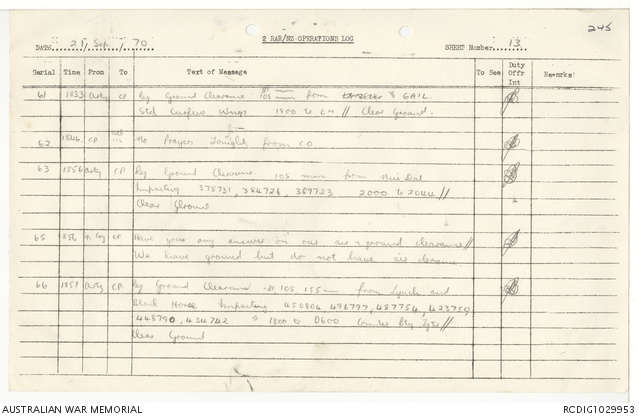 245
2 RAR/NZ OPERATIONS LOG
DATE 21/Sep/70 SHEET Number 13
Serial Time From To Text of Message To See Duty Offr Int Remarks
61 1833 Arty CP Rq Ground Clearance 105 from & GAIL
Std Wings 1800 to // Clear Ground.
62 1846 CP No Prayers Tonight from CO
63 1856 Arty CP Rq Ground Clearance 105 mm from Nui Dat
Impacting 375731, 384726, 389723 2000 to 2044 //
Clear Ground
65 1856 Coy CP Have you any answer on our air & ground clearance //
We have ground but do not have air clearance
66 1857 Arty CP Rq Ground Clearance 105 155mm from Lynch and
Black Horse Impacting 450804 496797, 487754, 423759
448790, 434742 1800 to 0600 Counter Bty //
Clear Ground
AUSTRALIAN WAR MEMORIAL RCDIG1029953